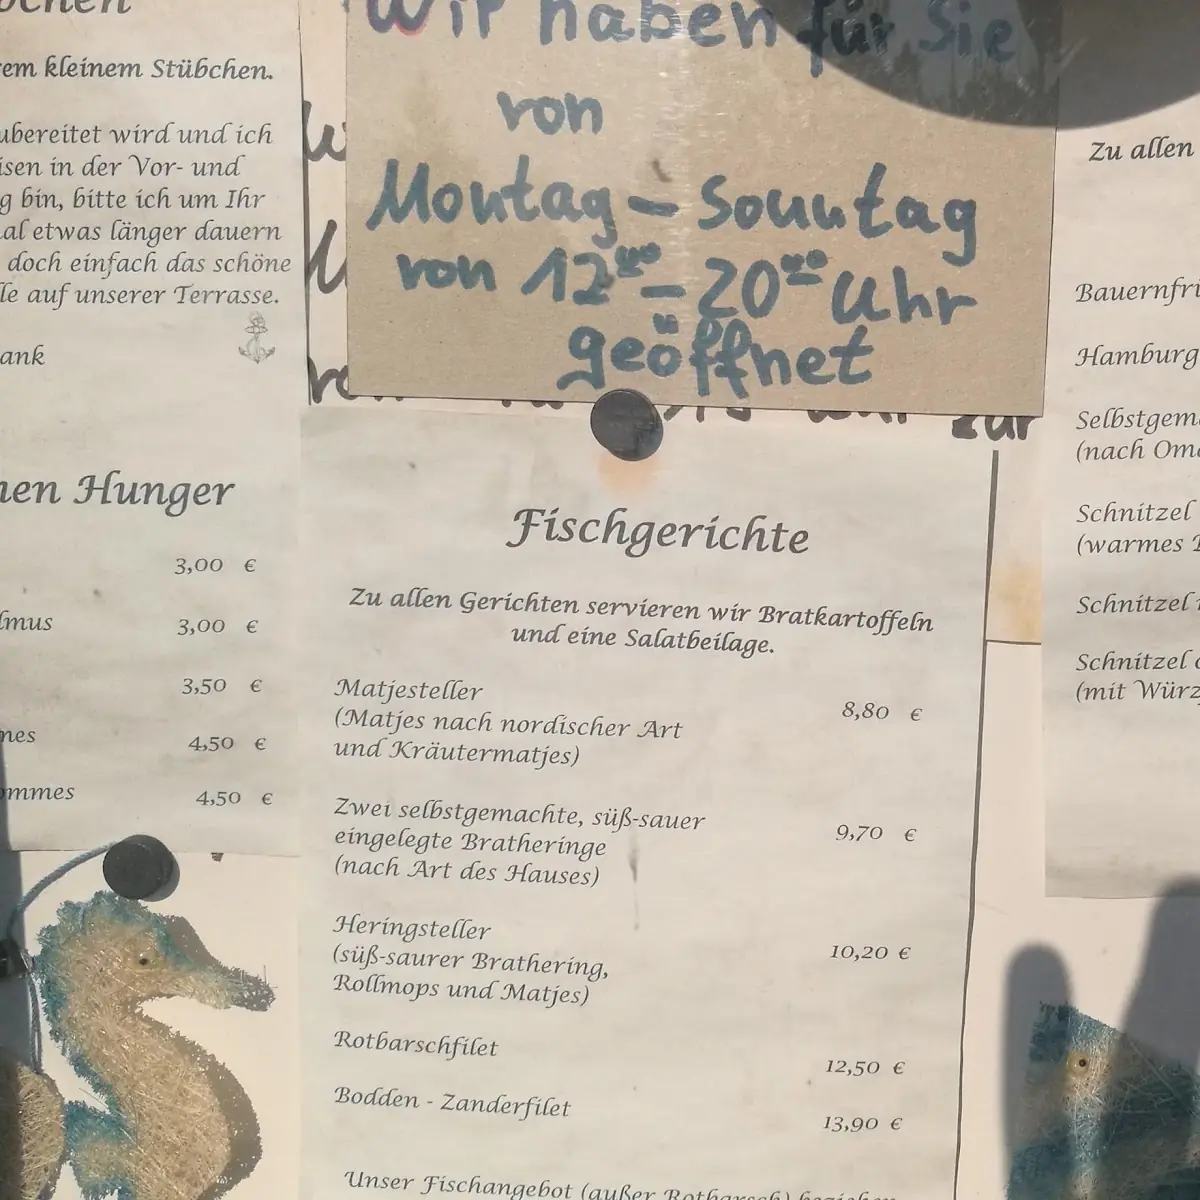 kleinem Stübchen.
wird und ich
in der Vor- und
bin, bitte ich um Ihr
etwas länger dauern
doch einfach das schöne
auf unserer Terrasse.
Hunger
3,00 €
3,00 €
3,50 €
4,50 €
4,50 €
Wir haben für Sie
von
Montag - Sonntag
von 12⁰⁰ - 20⁰⁰ Uhr
geöffnet
Fischgerichte
Zu allen Gerichten servieren wir Bratkartoffeln
und eine Salatbeilage.
Matjesteller
(Matjes nach nordischer Art
und Kräutermatjes)
8,80 €
Zwei selbstgemachte, süß-sauer
eingelegte Bratheringe
(nach Art des Hauses)
9,70 €
Heringsteller
(süß-saurer Brathering,
Rollmops und Matjes)
10,20 €
Rotbarschfilet
12,50 €
Bodden - Zanderfilet
13,90 €
Unser Fischangebot (außer Rotbarsch) beziehen
Zu allen
(nach
Schnitzel
(warmes
Schnitzel
Schnitzel
(mit